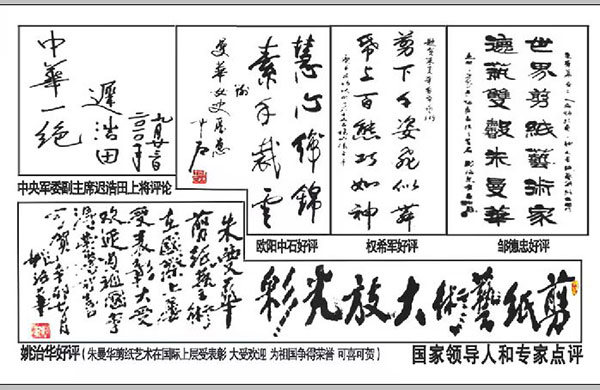 中华一绝
遲浩田
二〇〇〇年
九月廿二日
中央军委副主席迟浩田上将评论
慧心织锦
素手裁云
曼华女史属意
中石
欧阳中石好评
剪下千姿飛似舞
帋上百態巧如神
权希军好评
世界剪紙藝術家
遍蓺雙馨朱曼華
邹德忠好评
朱曼華
剪紙藝术
在國際上层
受表彰大受
欢迎為祖國争
得榮誉可喜
可賀
姚治华
姚治华好评（朱曼华剪纸艺术在国际上层受表彰 大受欢迎 为祖国争得荣誉 可喜可贺）
剪紙藝術大放光彩
国家领导人和专家点评